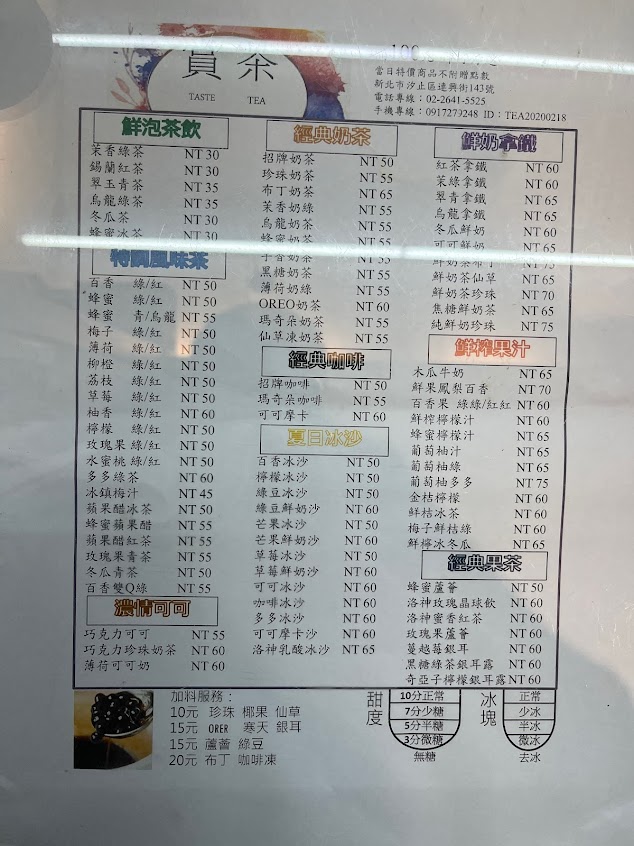 賞茶
TASTE TEA
當日特價商品不附贈點數
新北市汐止區達興街143號
電話專線：02-2641-5525
手機專線：0917279248 ID：TEA20200218
鮮泡茶飲
茉香綠茶 NT 30
錫蘭紅茶 NT 30
翠玉青茶 NT 35
烏龍綠茶 NT 35
冬瓜茶 NT 30
蜂蜜冰茶 NT 30
特調風味茶
百香 綠/紅 NT 50
蜂蜜 綠/紅 NT 50
蜂蜜 青/烏龍 NT 55
梅子 綠/紅 NT 50
薄荷 綠/紅 NT 50
柳橙 綠/紅 NT 50
荔枝 綠/紅 NT 50
草莓 綠/紅 NT 50
柚香 綠/紅 NT 60
檸檬 綠/紅 NT 50
玫瑰果 綠/紅 NT 50
水蜜桃 綠/紅 NT 50
多多綠茶 NT 60
冰鎮梅汁 NT 45
蘋果醋冰茶 NT 50
蜂蜜蘋果醋 NT 55
蘋果醋紅茶 NT 55
玫瑰果青茶 NT 55
冬瓜青茶 NT 50
百香雙Q綠 NT 55
濃情可可
巧克力可可 NT 55
巧克力珍珠奶茶 NT 60
薄荷可可奶 NT 60
經典奶茶
招牌奶茶 NT 50
珍珠奶茶 NT 55
布丁奶茶 NT 65
茉香奶綠 NT 55
烏龍奶茶 NT 55
蜂蜜奶茶 NT 55
芋香奶茶 NT 55
黑糖奶茶 NT 55
薄荷奶綠 NT 50
OREO奶茶 NT 60
瑪奇朵奶茶 NT 55
仙草凍奶茶 NT 55
經典咖啡
招牌咖啡 NT 50
瑪奇朵咖啡 NT 55
可可摩卡 NT 60
夏日冰沙
百香冰沙 NT 50
檸檬冰沙 NT 50
綠豆冰沙 NT 50
綠豆鮮奶沙 NT 60
芒果冰沙 NT 50
芒果鮮奶沙 NT 60
草莓冰沙 NT 50
草莓鮮奶沙 NT 60
可可冰沙 NT 60
咖啡冰沙 NT 60
多多冰沙 NT 60
可可摩卡沙 NT 60
洛神乳酸冰沙 NT 65
鮮奶拿鐵
紅茶拿鐵 NT 60
茉綠拿鐵 NT 60
翠青拿鐵 NT 65
烏龍拿鐵 NT 65
冬瓜鮮奶 NT 60
可可鮮奶 NT 65
鮮奶茶布丁 NT 75
鮮奶茶仙草 NT 65
鮮奶茶珍珠 NT 70
焦糖鮮奶茶 NT 65
純鮮奶珍珠 NT 75
鮮榨果汁
木瓜牛奶 NT 65
鮮果鳳梨百香 NT 70
百香果 綠綠/紅紅 NT 60
鮮榨檸檬汁 NT 60
蜂蜜檸檬汁 NT 65
葡萄柚汁 NT 65
葡萄柚綠 NT 65
葡萄柚多多 NT 75
金桔檸檬 NT 60
鮮桔冰茶 NT 60
梅子鮮桔綠 NT 60
鮮檸冰冬瓜 NT 65
經典果茶
蜂蜜蘆薈 NT 50
洛神玫瑰晶球飲 NT 60
洛神蜜香紅茶 NT 60
玫瑰果蘆薈 NT 60
蔓越莓銀耳 NT 60
黑糖綠茶銀耳露 NT 60
奇亞子檸檬銀耳露 NT 60
加料服務：
10元 珍珠 椰果 仙草
15元 ORER 寒天 銀耳
15元 蘆薈 綠豆
20元 布丁 咖啡凍
甜度
10分正常
7分少糖
5分半糖
3分微糖
無糖
冰塊
正常
少冰
半冰
微冰
去冰